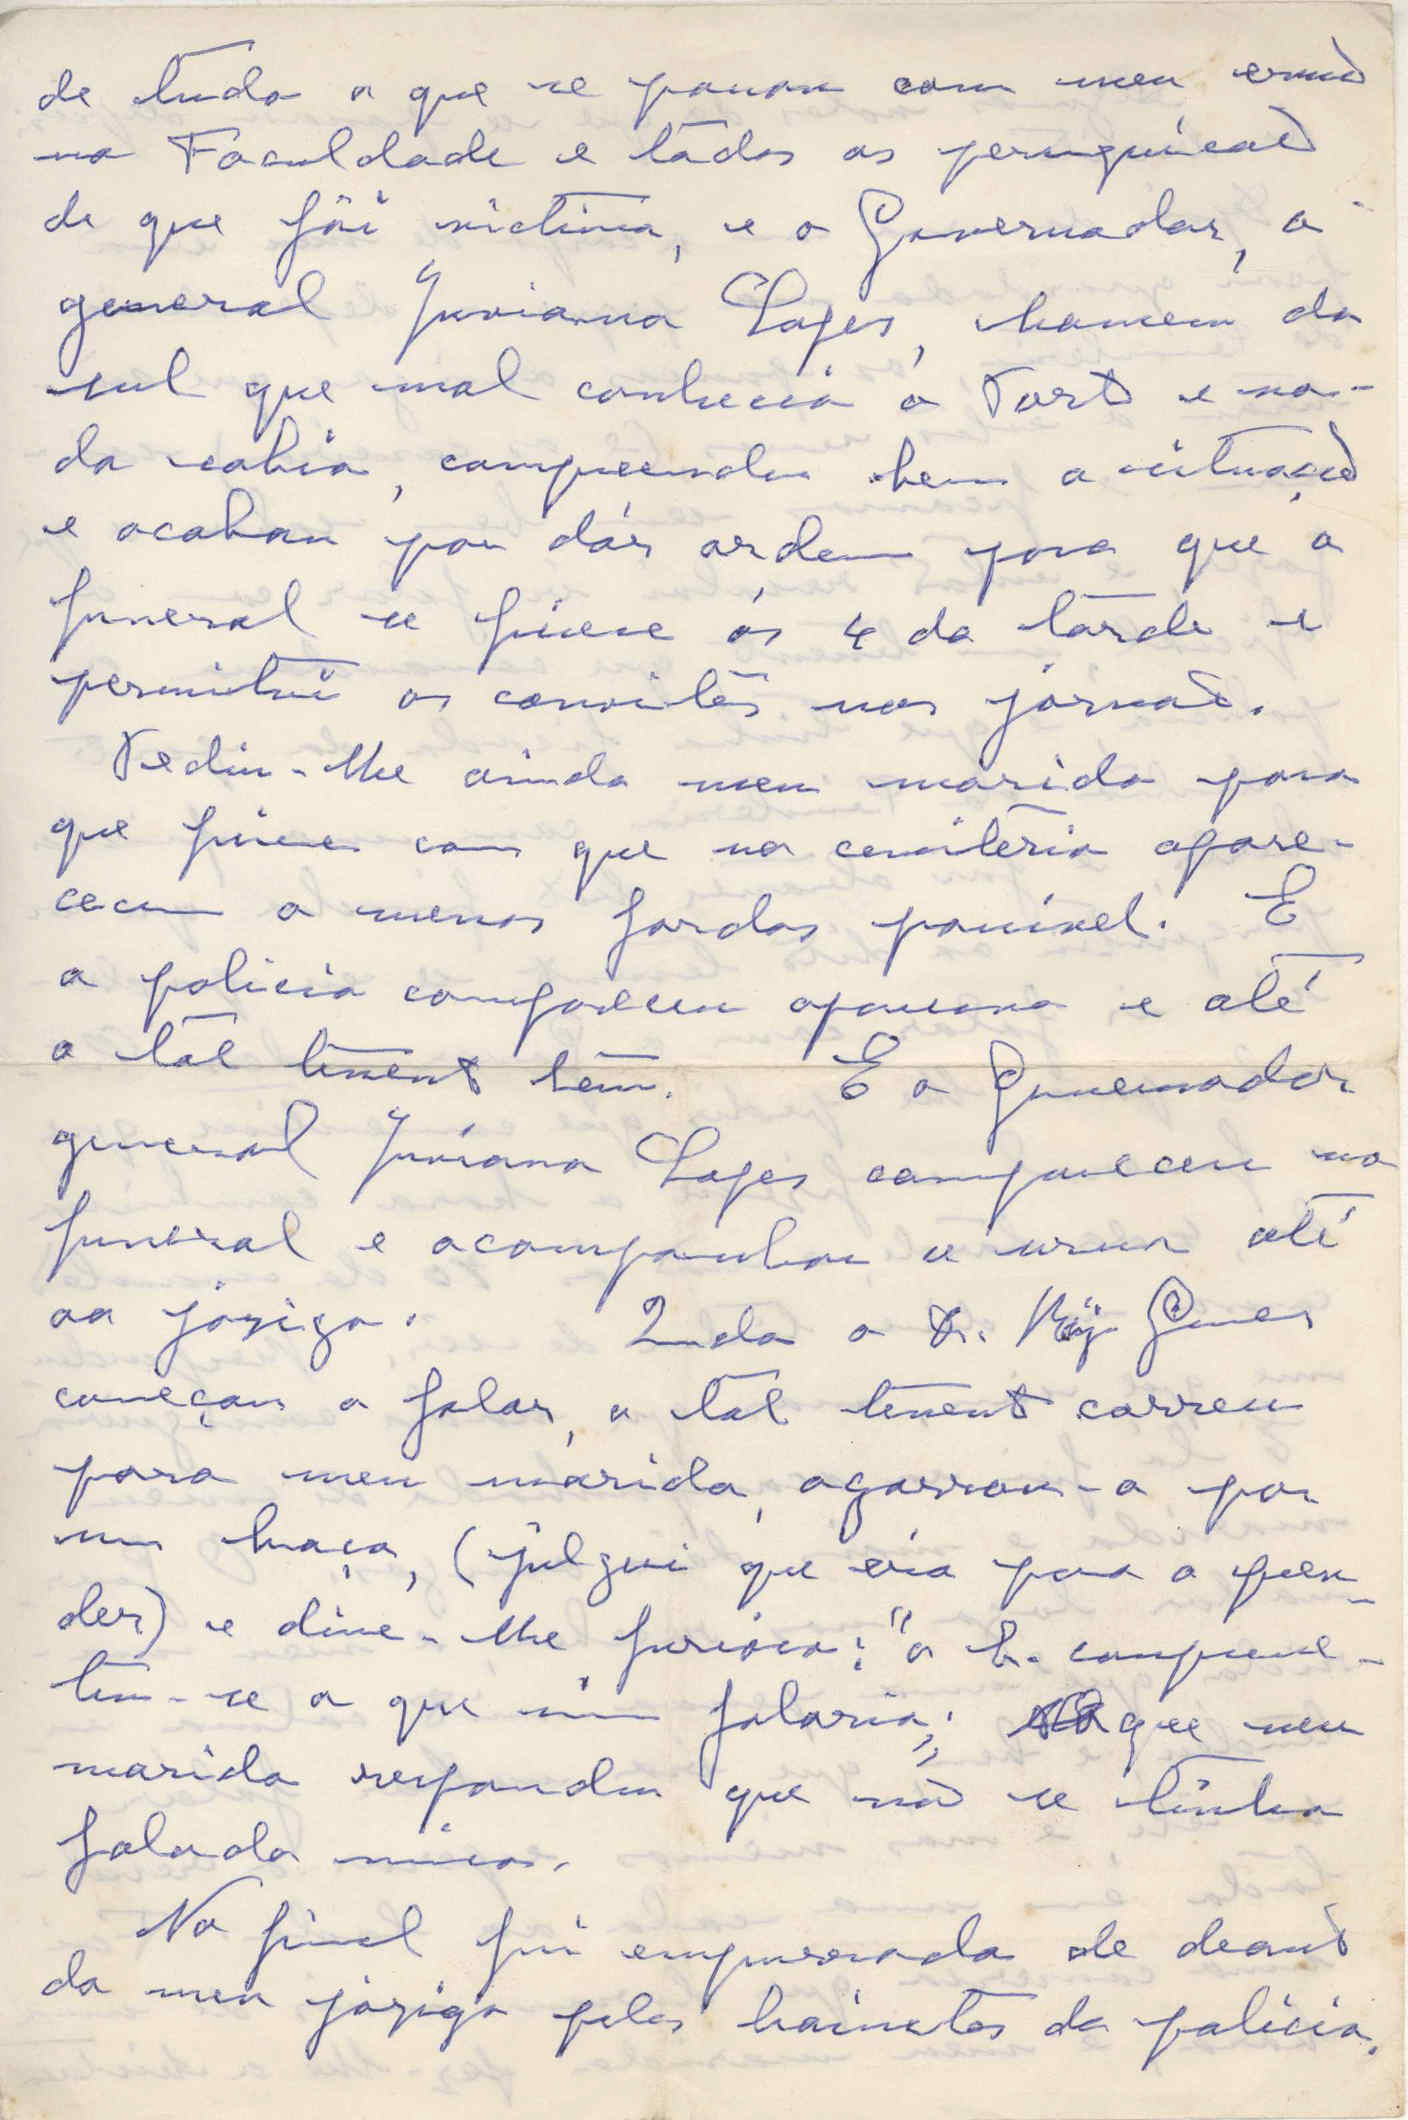 de tudo o que se passou com meu irmão
na Faculdade e tôdas as perseguições
de que fôi victima, e o Governador, o
general Juviano Lopes, homem do
sul que mal conhecia o Porto e na-
da sabia, compreendeu bem a situação
e acabou por dár ordem para que o
funeral se fizesse ás 4 da tarde e
permitiu os convites nos jornaes.
Pediu-lhe ainda meu marido para
que fizesse com que no cemitério apare-
cecem o menos fardas possivel. E
a policia compareceu apaisana e até
o tal tenente tem. E o Governador
general Juviano Lopes compareceu no
funeral e acompanhou a urna até
ao jazigo. Qndo o Dr. Ruy Gomes
começou a falar, o tal tenente correu
para meu marido, agarrou-o por
um braço, (julguei que era para o pren-
der) e disse-lhe furioso: "o Sr. comprome-
teu-se a que não falaria; que meu
marido respondeu que não se tinha
falado nisso.
No final fui empurrada de deante
do meu jazigo pelas bainetas da policia.